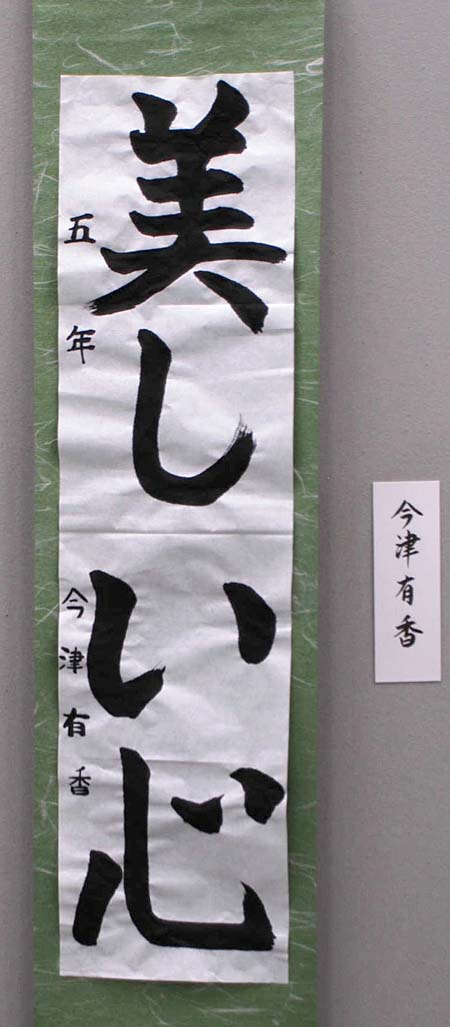 美しい心
五年 今津有香
今津有香